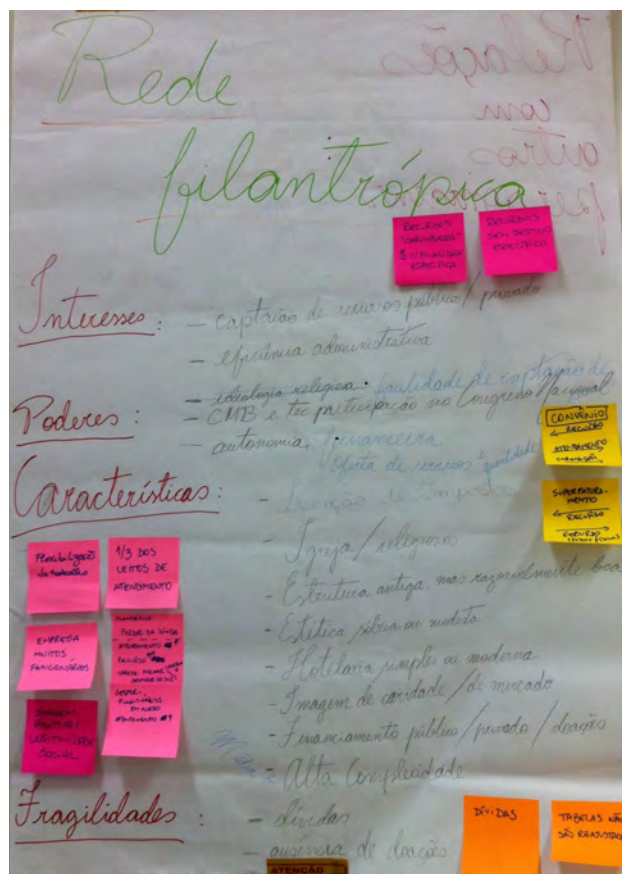 Rede
filantrópica
Relações
com
outros
RECURSOS
"CARIMBADOS"
$ P/ FINALIDADE
ESPECÍFICA
RECURSOS
SEM DESTINO
ESPECÍFICO
Interesses:
- captação de recursos público/privado
- eficiência administrativa
- ideologia religiosa • facilidade de captação de
Poderes:
- CMB e ter participação no Congresso Nacional
- autonomia financeira
Oferta de serviços quantidade
CONVÊNIO
RECURSO
ATENDIMENTO
SUPERFATURA-
MENTO
RECURSO
RECURSO
Características:
- Isenção de impostos
- Igreja/religiosos
- Estrutura antiga, mas razoavelmente boa
- Estética sóbria ou modesta
- Hotelaria simples ou moderna
- Imagem de caridade/de mercado
- Financiamento público/privado/doações
- Alta Complexidade
Flexibilização
do trabalho
1/3 DOS
LEITOS DE
ATENDIMENTO
EMPREGA
MUITOS
FUNCIONÁRIOS
PERDÃO DA DÍVIDA
ATENDIMENTO
RECURSO
FUNCIONÁRIOS
ATENDIMENTO
LEGITIMIDADE
SOCIAL
Fragilidades:
- dívidas
- ausência de doações
DÍVIDAS
TABELAS NÃO
SÃO REAJUSTADAS
ATENÇÃO